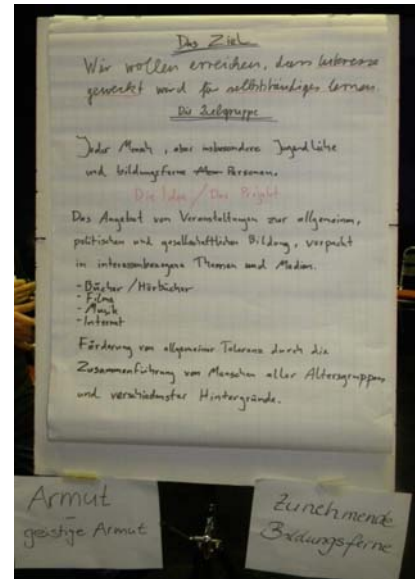 Das Ziel
Wir wollen erreichen, dass Interesse
geweckt wird für selbstständiges lernen.
Die Zielgruppe
Jeder Mensch, aber insbesondere Jugendliche
und bildungsferne Personen.
Die Idee / Das Projekt
Das Angebot von Veranstaltungen zur allgemeinen,
politischen und gesellschaftlichen Bildung, verpackt
in interessenbezogene Themen und Medien.
- Bücher / Hörbücher
- Filme
- Musik
- Internet
Förderung von allgemeiner Toleranz durch die
Zusammenführung von Menschen aller Altersgruppen
und verschiedenster Hintergründe.
Armut
geistige Armut
Zunehmende
Bildungsferne